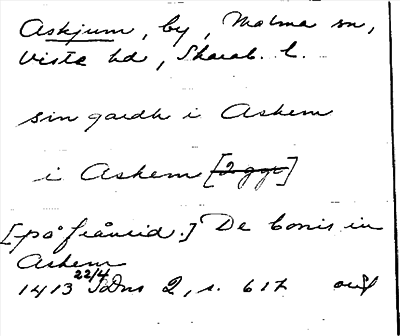 Askjum, by, Malma sn,
Viste hd, Skarab. l.
sin gardh i Askem
i Askem [2 ggr]
[på frånsid.] De bonis in
Askem
1413 22/4 SDns 2, s. 617 orig